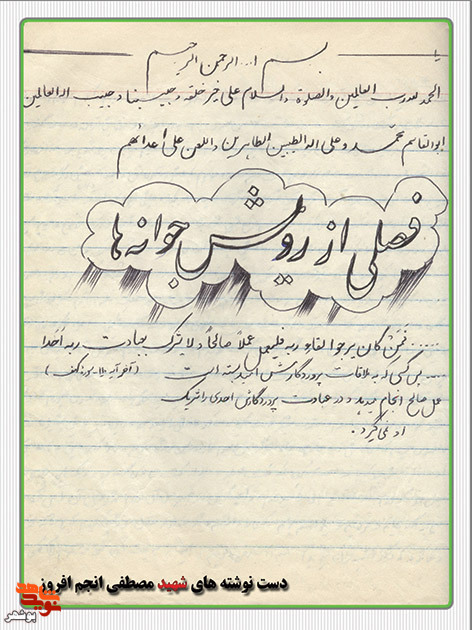 یا
بسم ا... الرحمن الرحیم
الحمد لله رب العالمین والصلوة والسلام علی خیر خلقه و حبیبنا و حبیب اله العالمین
ابوالقاسم محمّد و علی اله الطیبین الطاهرین واللعن علی اعدائهم
فصلی از رویش جوانه ها
..... فَمَنْ کان یرجوا لقاء ربه فلیعمل عملاً صالحاً و لا یشرک بعبادت ربه اَحدا
.... پس کسی که به ملاقات پروردگارش امید بسته است (آخر آیه سوره کهف)
عمل صالح انجام میدهد و در عبادت پروردگارش احدی را شریک
او نمی‌گیرد.
دست نوشته های شهید مصطفی انجم افروز
نوید شاهد
بوشهر